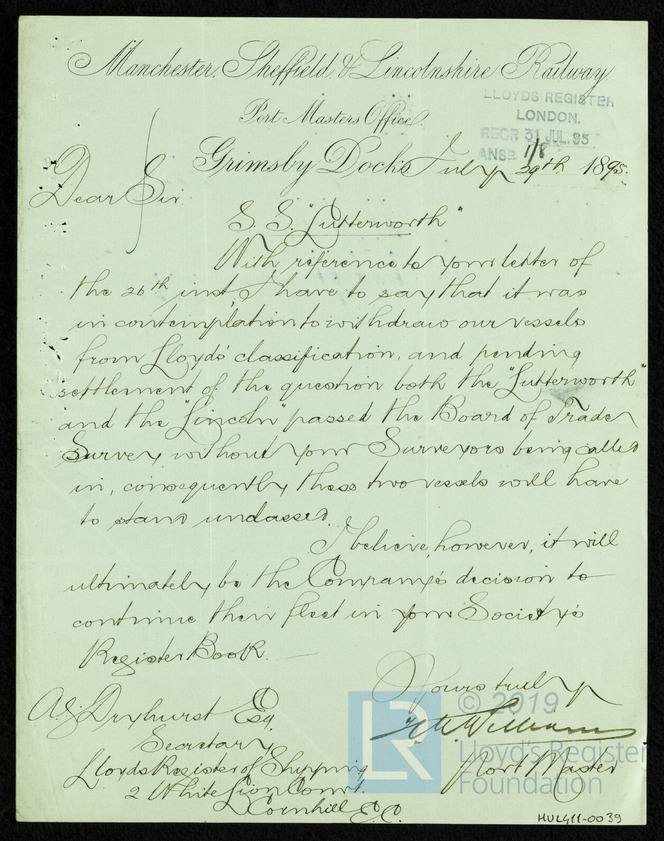 Manchester, Sheffield & Lincolnshire Railway.
Port Masters Office,
LLOYDS REGISTER
LONDON.
RECR 31 JUL. 95
ANSR 1/8
Grimsby Docks July 29th 1895.
Dear Sir
S. S. "Lutterworth"
With reference to your letter of
the 26th inst, I have to say that it was
in contemplation to withdraw our vessels
from Lloyds' classification, and pending
settlement of the question both the "Lutterworth"
and the "Lincoln" passed the Board of Trade
Survey without your Surveyors being called
in, consequently these two vessels will have
to stand unclassed.
I believe, however, it will
ultimately be the Company's decision to
continue their fleet in your Society's
Register Book.
Yours truly
Williams
Port Master
Dryhurst Esq.
Secretary
Lloyds Register of Shipping
2 White Lion Court
Cornhill E.C.
LR
© 2019
Lloyd's Register
Foundation
HUL411-0039